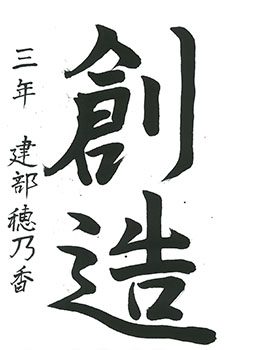 創造
三年 建部穂乃香